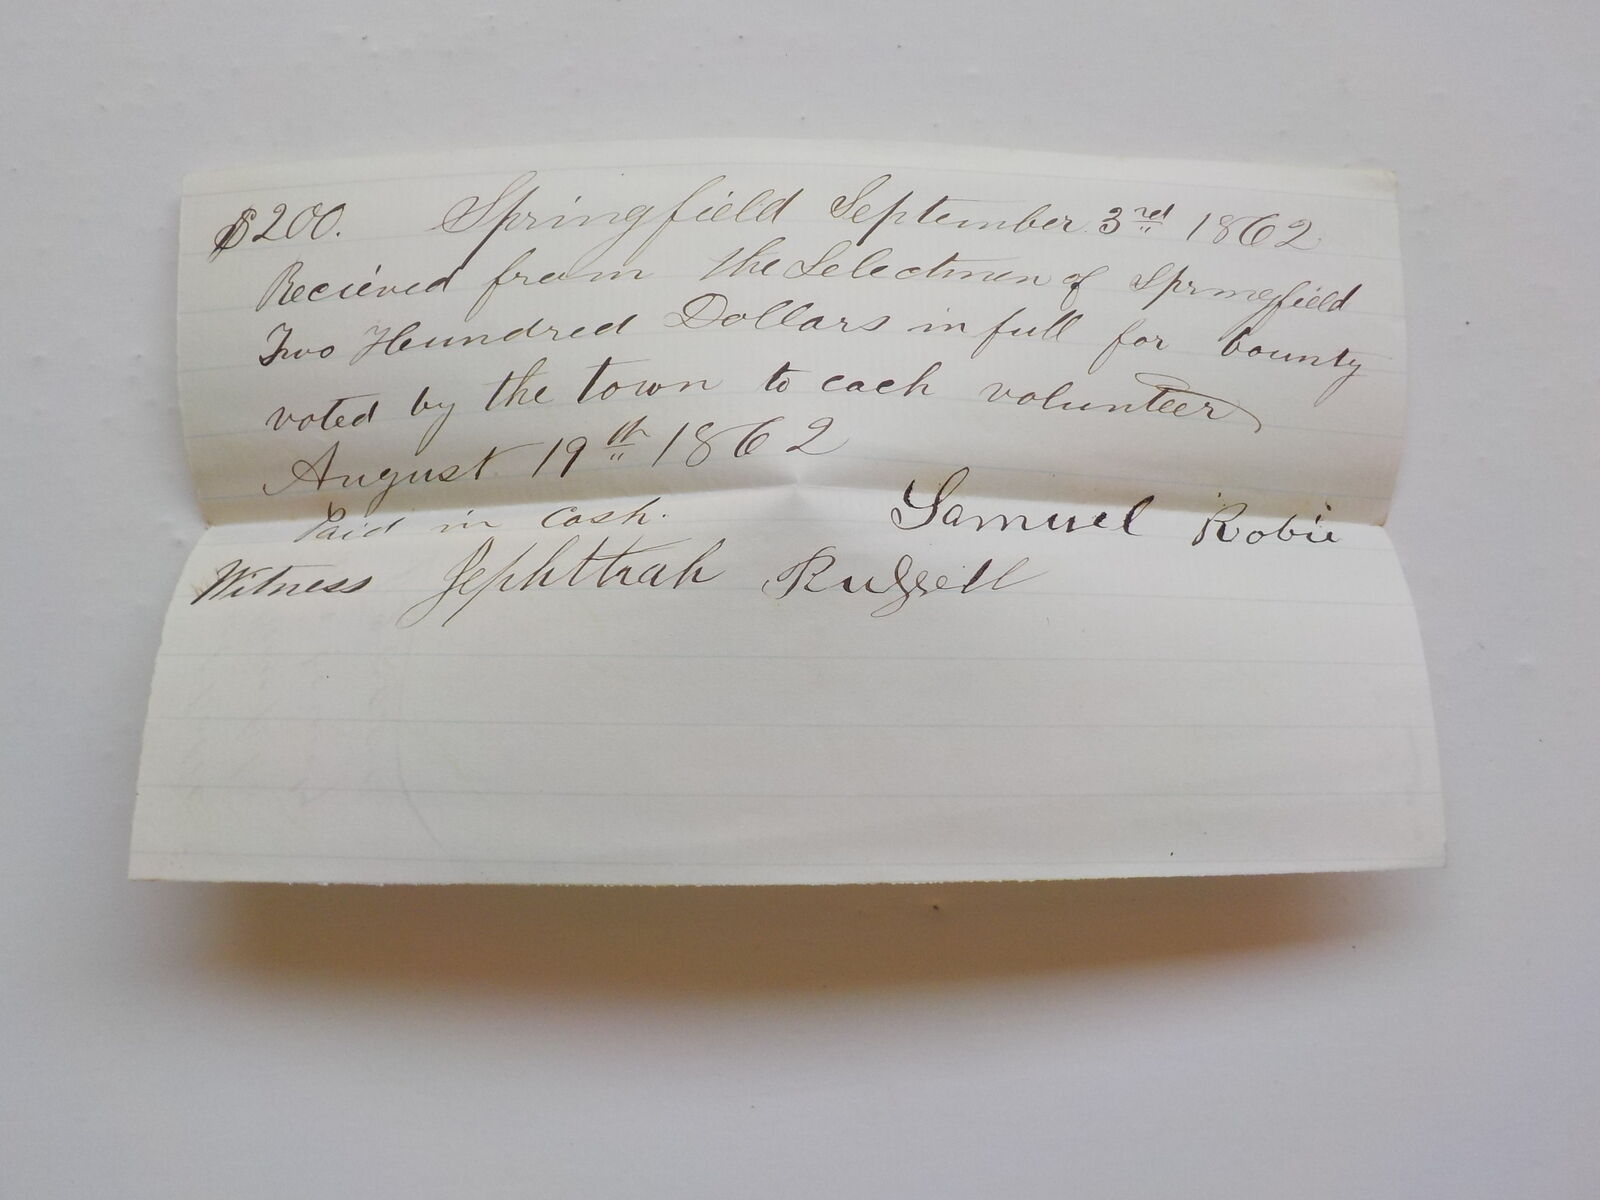 $200. Springfield September 3rd 1862
Recieved from the Selectmen of Springfield
Two Hundred Dollars in full for bounty
voted by the town to each volunteer
August 19th 1862
Paid in Cash. Samuel Robie
Witness Jephthah Russell